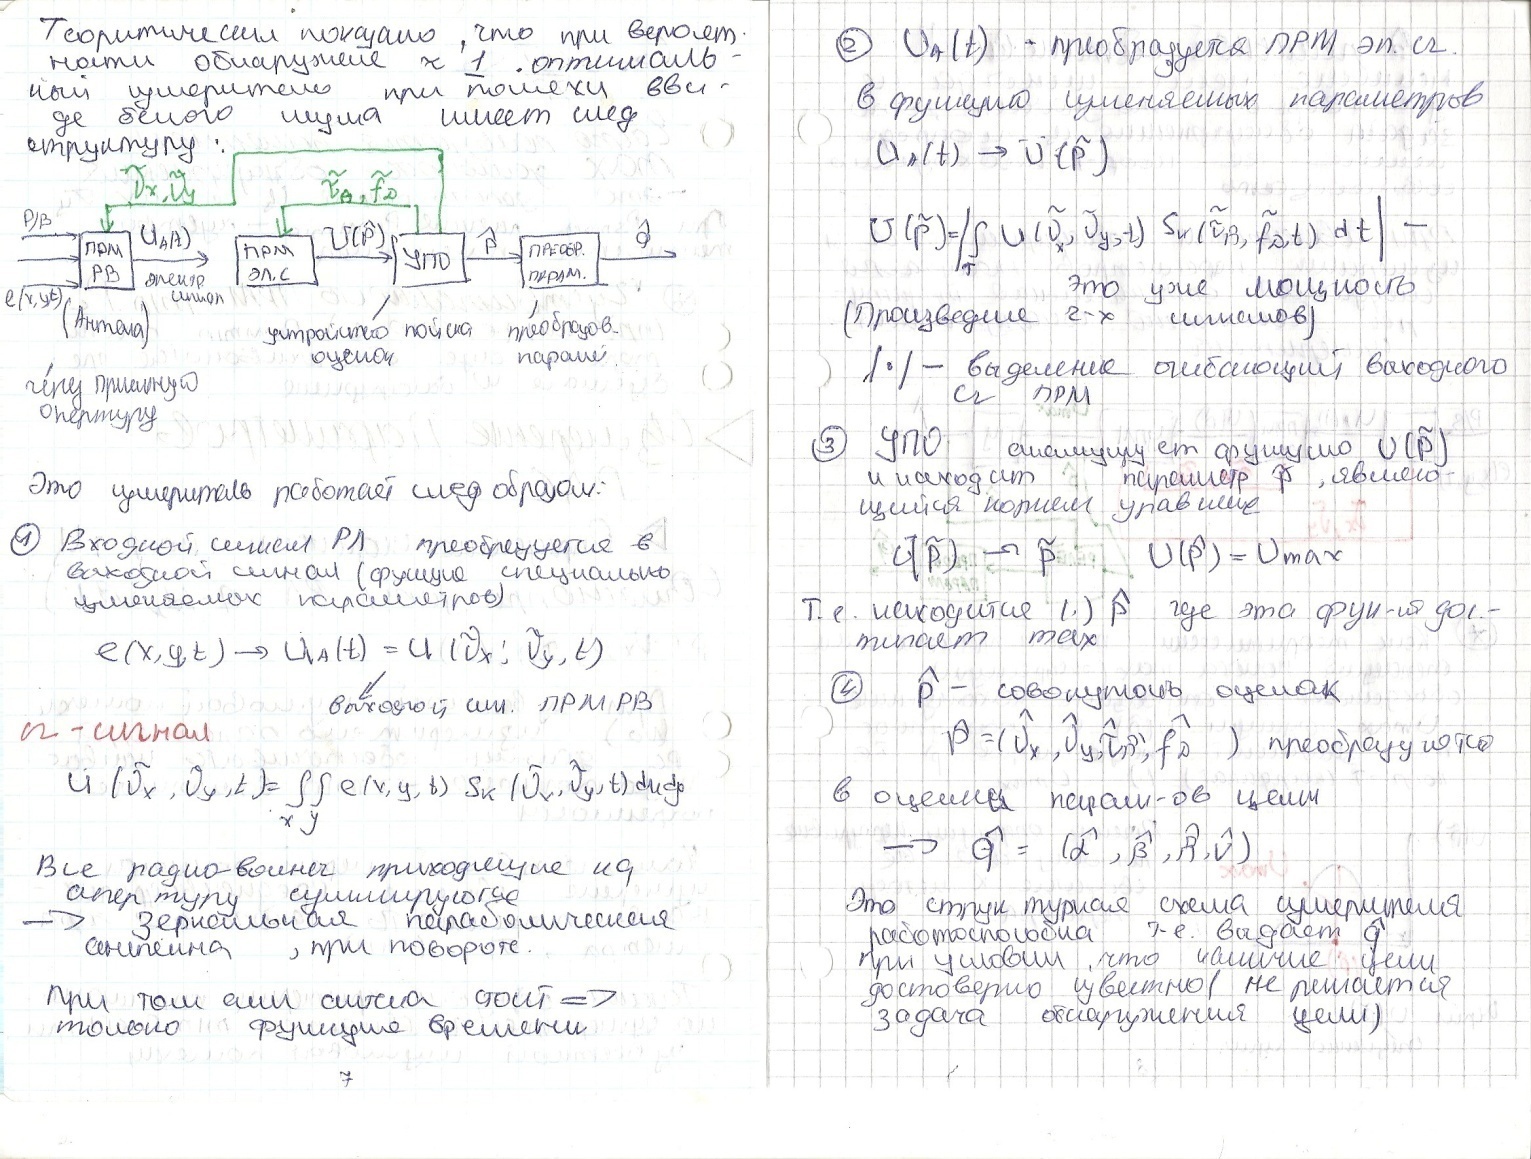 Теоритически показано, что при вероят-
ности обнаружение ≈ 1 оптималь-
ный измеритель при помехи в ви-
де белого шума имеет след
структуру:
Ṽx, Ṽy
τ̃R, f̃D
РВ
ПРМ
РВ
UA(t)
электр
сигнал
ПРМ
ЭЛ.С
U(p̃)
УПО
p̂
ПРЕОБР.
ПАРАМ.
q̂
e(x,y,t)
(Антенна)
устройство поиска
оценок
преобразов.
парамет.
через приемную
апертуру
Этот измеритель работает след образом:
① Входной сигнал РЛ преобразуется в
выходной сигнал (функцию специально
изменяемых параметров)
e(x,y,t) → UA(t) = U(Ṽx, Ṽy, t)
выходной сиг. ПРМ РВ
сг - сигнал
U(Ṽx, Ṽy, t) = ∫∫ e(x,y,t) Sк(Ṽx, Ṽy, t) dxdy
x y
Все радио-волны приходящие на
апертуру суммируются
→ Зеркальная параболическая
антенна, при повороте.
При том если антенна стоит =>
только функция времени
7
② UA(t) - преобразуется ПРМ эл. сг.
в функцию изменяемых параметров
UA(t) → U(p̃)
U(p̃) = |∫ U(Ṽx, Ṽy, t) Sк(τ̃R, f̃D, t) dt| —
T
это уже мощность
(Произведение 2-х сигналов)
|·| — выделение огибающий выходного
сг ПРМ
③ УПО анализирует функцию U(p̃)
и находит параметр p̂, являю-
щийся корнем уравнение
U(p̃) → p̂ U(p̂) = Umax
Т.е. находится (·) p̂ где эта функ-ия дос-
тигает max
④ p̂ - совокупность оценок
p̂ = (V̂x, V̂y, τ̂R, f̂D) преобразуются
в оценки парам-ов цели
→ q̂ = (α̂, β̂, R̂, V̂)
Это структурная схема измерителя
работоспособна т.е. выдает q̂
при условии, что наличие цели
достоверно известно (не решается
задача обнаружения цели)